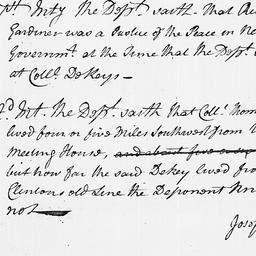 Inty. The Dept. saith that
Gardiner was a Justice of the Peace in
Governmt. at the Time that the Dept.
at Collo. DeKeys—
Int. The Dept. saith that Collo.
lived four or five Miles Southwest from
Meeting House, and about five
but how far the said Dekey lived
Clintons old Line the Deponent
not—
Josep